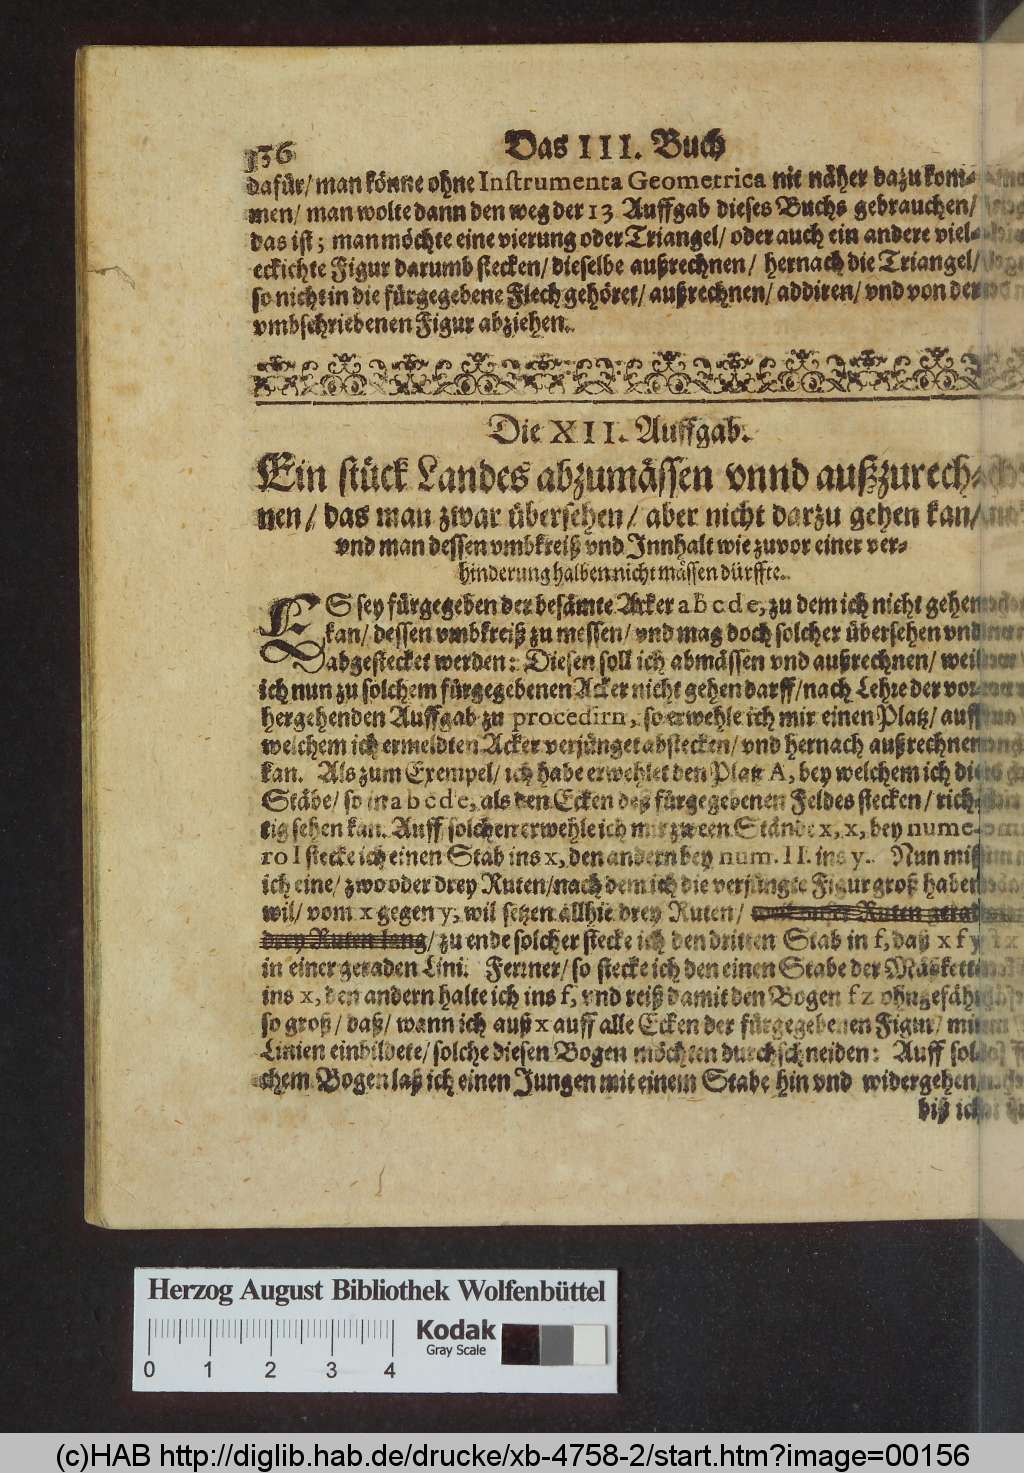 136
Das III. Buch
dafür/ man könne ohne Instrumenta Geometrica nit näher dazu kom-
men/ man wolte dann den weg der 13 Auffgab dieses Buchs gebrauchen/
das ist; man möchte eine vierung oder Triangel/ oder auch ein andere viel-
eckichte Figur darumb stecken/ dieselbe außrechnen/ hernach die Triangel/
so nicht in die fürgegebene Flech gehöret/ außrechnen/ addiren/ vnd von der
vmbschriebenen Figur abziehen.
Die XII. Auffgab.
Ein stück Landes abzumässen vnnd außzurech-
nen/ das man zwar übersehen/ aber nicht darzu gehen kan/
vnd man dessen vmbkreiß vnd Innhalt wie zuvor einer ver-
hinderung halben nicht mässen dürffte.
ES sey fürgegeben der besämte Acker a b c d e, zu dem ich nicht gehen
kan/ dessen vmbkreiß zu messen/ vnd mag doch solcher übersehen vnd
abgestecket werden: Diesen soll ich abmässen vnd außrechnen/ weil
ich nun zu solchem fürgegebenen Acker nicht gehen darff/ nach Lehre der vor-
hergehenden Auffgab zu procedirn, so erwehle ich mir einen Platz/ auff
welchem ich ermeldten Acker verjünget abstecken/ vnd hernach außrechnen
kan. Als zum Exempel/ ich habe erwehlet den Platz A, bey welchem ich die
Stäbe/ so in a b c d e, als den Ecken deß fürgegebenen Feldes stecken/ rich-
tig sehen kan. Auff solchen erwehle ich mir zween Stände x, x, bey nume-
ro I stecke ich einen Stab ins x, den andern bey num. II. ins y. Nun miß
ich eine/ zwo oder drey Ruten/ nach dem ich die verjüngte Figur groß haben
wil/ vom x gegen y, wil setzen allhie drey Ruten/ Ruten
drey Ruten lang/ zu ende solcher stecke ich den dritten Stab in f, daß x f y
in einer geraden Lini. Ferrner/ so stecke ich den einen Stabe der Mäskettin
ins x, den andern halte ich ins f, vnd reiß damit den Bogen f z ohngefähr
so groß/ daß/ wann ich auß x auff alle Ecken der fürgegebenen Figur/ mir
Linien einbildete/ solche diesen Bogen möchten durchschneiden: Auff sol-
chem Bogen laß ich einen Jungen mit einem Stabe hin vnd widergehen,
biß ich
Herzog August Bibliothek Wolfenbüttel
Kodak
Gray Scale
0 1 2 3 4
(c)HAB http://diglib.hab.de/drucke/xb-4758-2/start.htm?image=00156